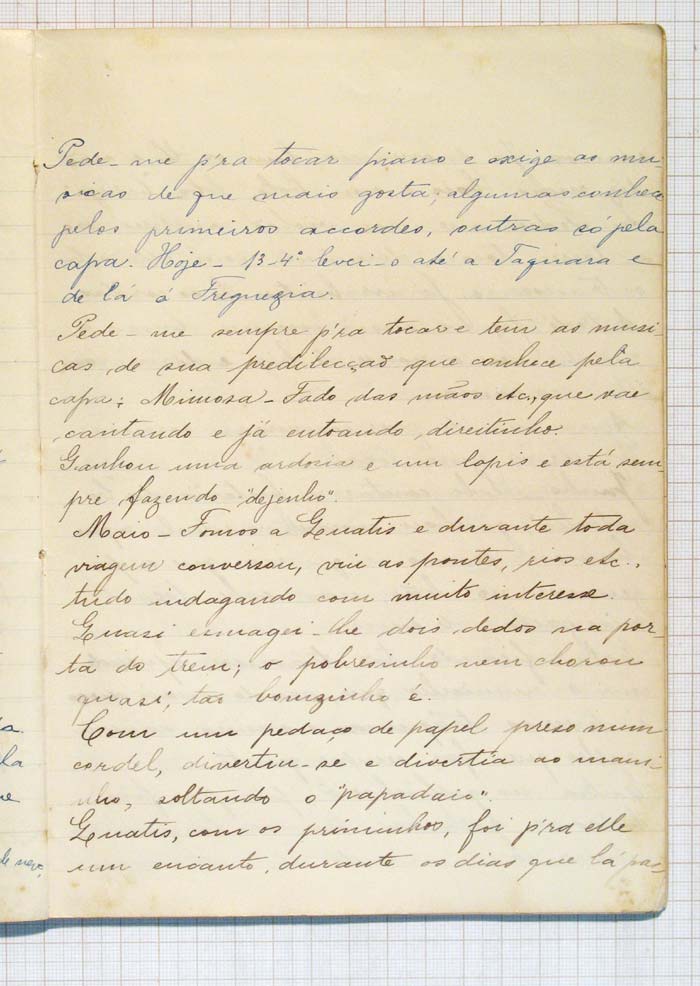 Pede-me p'ra tocar piano e exige as mu-
sicas de que mais gosta; algumas conhece
pelos primeiros accordes, outras só pela
capa. Hoje - 13-4º levei-o até a Taquara e
de lá á Freguezia.
Pede-me sempre p'ra tocar e tem as musi-
cas de sua predilecção que conhece pela
capa; Mimosa - Fado das mãos etc., que vae
cantando e já entoando direitinho.
Ganhou uma ardosia e um lapis e está sem-
pre fazendo "dejenho".
Maio - Fomos a Quatis e durante toda
viagem conversou, viu as pontes, rios etc.,
tudo indagando com muito interesse.
Quasi esmaguei-lhe dois dedos na por-
ta do trem; o pobresinho nem chorou
quasi, tão bomzinho é.
Com um pedaço de papel preso num
cordel, divertiu-se e divertia ao mani-
nho, soltando o "papadaio".
Quatis, com os priminhos, foi p'ra elle
um encanto, durante os dias que lá pa-